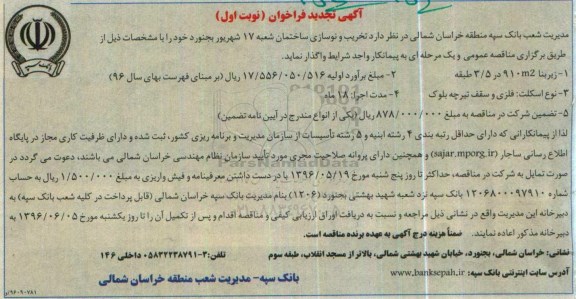 آگهی تجدید فراخوان (نوبت اول)
مدیریت شعب بانک سپه منطقه خراسان شمالی در نظر دارد تخریب و نوسازی ساختمان شعبه ۱۷ شهریور بجنورد خود را با مشخصات ذیل از
طریق برگزاری مناقصه عمومی و یک مرحله ای به پیمانکار واجد شرایط واگذار نماید.
۱- زیربنا ۹۱۰m2 در ۳/۵ طبقه ۲- مبلغ برآورد اولیه ۱۷/۵۵۶/۰۵۰/۵۱۶ ریال (بر مبنای فهرست بهای سال ۹۶)
۳- نوع اسکلت: فلزی و سقف تیرچه بلوک ۴- مدت اجرا: ۱۸ ماه
۵- تضمین شرکت در مناقصه به مبلغ ۸۷۸/۰۰۰/۰۰۰ ریال (یکی از انواع مندرج در آیین نامه تضمین)
لذا از پیمانکارانی که دارای حداقل رتبه بندی ۴ رشته ابنیه و ۵ رشته تأسیسات از سازمان مدیریت و برنامه ریزی کشور، ثبت شده و دارای ظرفیت کاری مجاز در پایگاه
اطلاع رسانی ساجار (sajar.mporg.ir) و همچنین دارای پروانه صلاحیت مجری مورد تأیید سازمان نظام مهندسی خراسان شمالی می باشند، دعوت می گردد در
صورت تمایل به شرکت در مناقصه، حداکثر تا روز پنج شنبه مورخ ۱۳۹۶/۰۵/۱۹ با در دست داشتن معرفینامه و فیش واریزی به مبلغ ۱/۵۰۰/۰۰۰ ریال به حساب
شماره ۱۲۰۶۸۰۰۰۹۷۹۱۰ بانک سپه نزد شعبه شهید بهشتی بجنورد (۱۲۰۶) بنام مدیریت بانک سپه خراسان شمالی (قابل پرداخت در کلیه شعب بانک سپه) به
دبیرخانه این مدیریت واقع در نشانی ذیل مراجعه و نسبت به دریافت اوراق ارزیابی کیفی و مناقصه اقدام و پس از تکمیل آن را تا روز یکشنبه مورخ ۱۳۹۶/۰۶/۰۵ به
دبیرخانه مذکور اعاده نمایند. ضمناً هزینه درج آگهی به عهده برنده مناقصه است.
نشانی: خراسان شمالی، بجنورد، خیابان شهید بهشتی شمالی، بالاتر از مسجد انقلاب، طبقه سوم تلفن: ۳-۰۵۸۳۲۲۳۸۷۹۱ داخلی ۱۴۶
آدرس سایت اینترنتی بانک سپه: www.banksepah.ir بانک سپه- مدیریت شعب منطقه خراسان شمالی